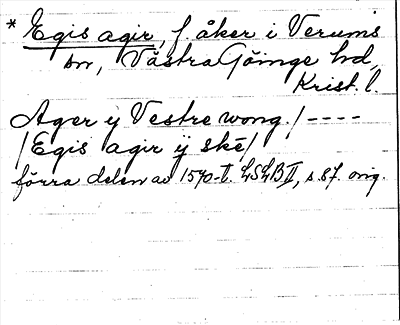 * Egis agir, f. åker i Verums
sn, Västra Göinge hd,
Krist. l.
Ager ij Vestre wong. / ----
/ Egis agir ij skë /
förra delen av 1570-t. LSLB II, s. 87. orig.